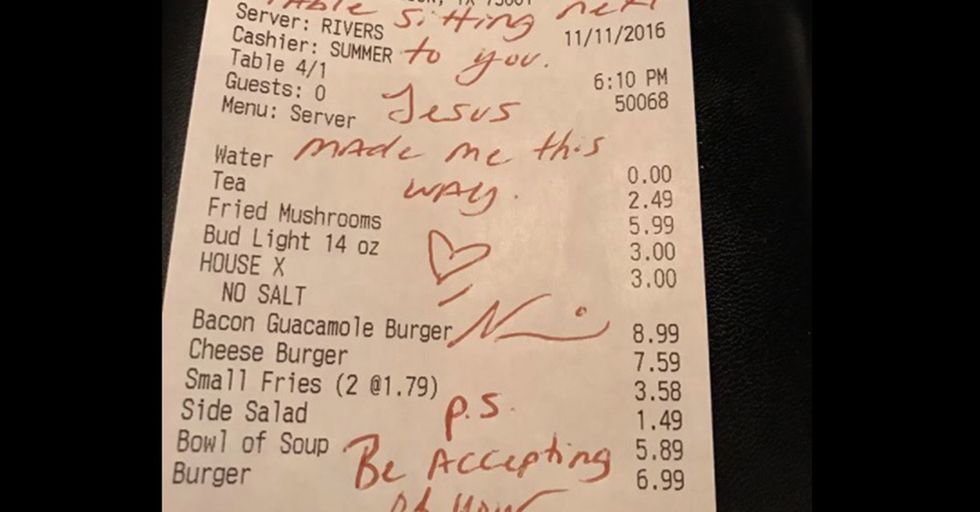 TABLE Sitting next
Server: RIVERS 11/11/2016
Cashier: SUMMER to you.
Table 4/1 6:10 PM
Guests: 0 50068
Menu: Server Jesus
made me this
Water 0.00
Tea way. 2.49
Fried Mushrooms 5.99
Bud Light 14 oz 3.00
HOUSE X 3.00
NO SALT
Bacon Guacamole Burger 8.99
Cheese Burger 7.59
Small Fries (2 @1.79) 3.58
Side Salad p.s. 1.49
Bowl of Soup 5.89
Be Accepting
Burger 6.99